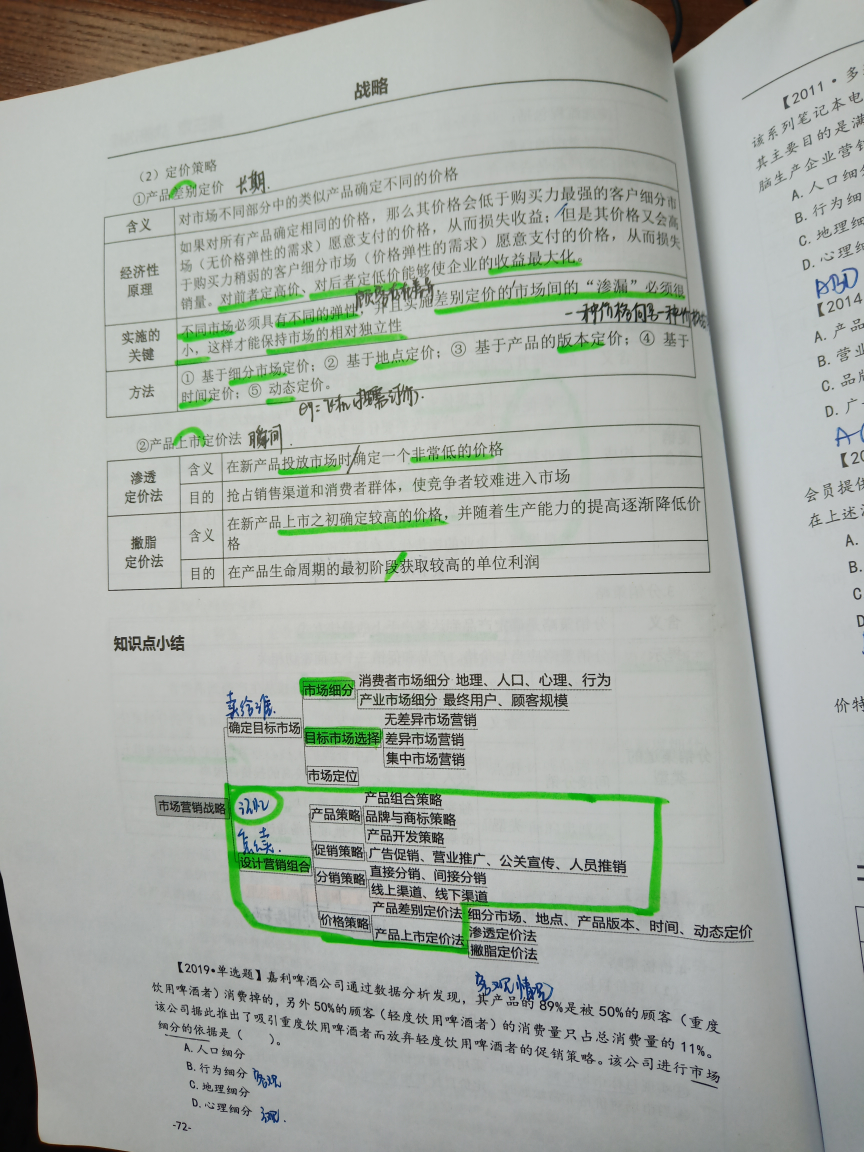 战略
（2）定价策略
①产品差别定价 长期.
含义 对市场不同部分中的类似产品确定不同的价格
经济性原理 如果对所有产品确定相同的价格，那么其价格会低于购买力最强的客户细分市
场（无价格弹性的需求）愿意支付的价格，从而损失收益；但是其价格又会高
于购买力稍弱的客户细分市场（价格弹性的需求）愿意支付的价格，从而损失
销量。对前者定高价、对后者定低价能够使企业的收益最大化。
实施的关键 不同市场必须具有不同的弹性，并且实施差别定价的市场间的“渗漏”必须很
小，这样才能保持市场的相对独立性
方法 ① 基于细分市场定价；② 基于地点定价；③ 基于产品的版本定价；④ 基于
时间定价；⑤ 动态定价。
②产品上市定价法 瞬间.
渗透定价法 含义 在新产品投放市场时确定一个非常低的价格
目的 抢占销售渠道和消费者群体，使竞争者较难进入市场
撇脂定价法 含义 在新产品上市之初确定较高的价格，并随着生产能力的提高逐渐降低价
格
目的 在产品生命周期的最初阶段获取较高的单位利润
知识点小结
市场营销战略
卖给谁.
确定目标市场
市场细分
消费者市场细分 地理、人口、心理、行为
产业市场细分 最终用户、顾客规模
目标市场选择
无差异市场营销
差异市场营销
集中市场营销
市场定位
记忆
怎卖.
设计营销组合
产品策略
产品组合策略
品牌与商标策略
产品开发策略
促销策略 广告促销、营业推广、公关宣传、人员推销
分销策略
直接分销、间接分销
线上渠道、线下渠道
价格策略
产品差别定价法 细分市场、地点、产品版本、时间、动态定价
产品上市定价法
渗透定价法
撇脂定价法
客观情况
【2019•单选题】嘉利啤酒公司通过数据分析发现，其产品的 89%是被 50%的顾客（重度
饮用啤酒者）消费掉的，另外 50%的顾客（轻度饮用啤酒者）的消费量只占总消费量的 11%。
该公司据此推出了吸引重度饮用啤酒者而放弃轻度饮用啤酒者的促销策略。该公司进行市场
细分的依据是（ ）。
A. 人口细分
B. 行为细分 客观
C. 地理细分
D. 心理细分
-72-
【2011 • 多
该系列笔记本电
其主要目的是满
脑生产企业营销
A. 人口细
B. 行为细
C. 地理细
D. 心理细
ABD
【2014
A. 产品
B. 营业
C. 品牌
D. 广
AC
【20
会员提供
在上述
A.
B.
C.
D.
价格特